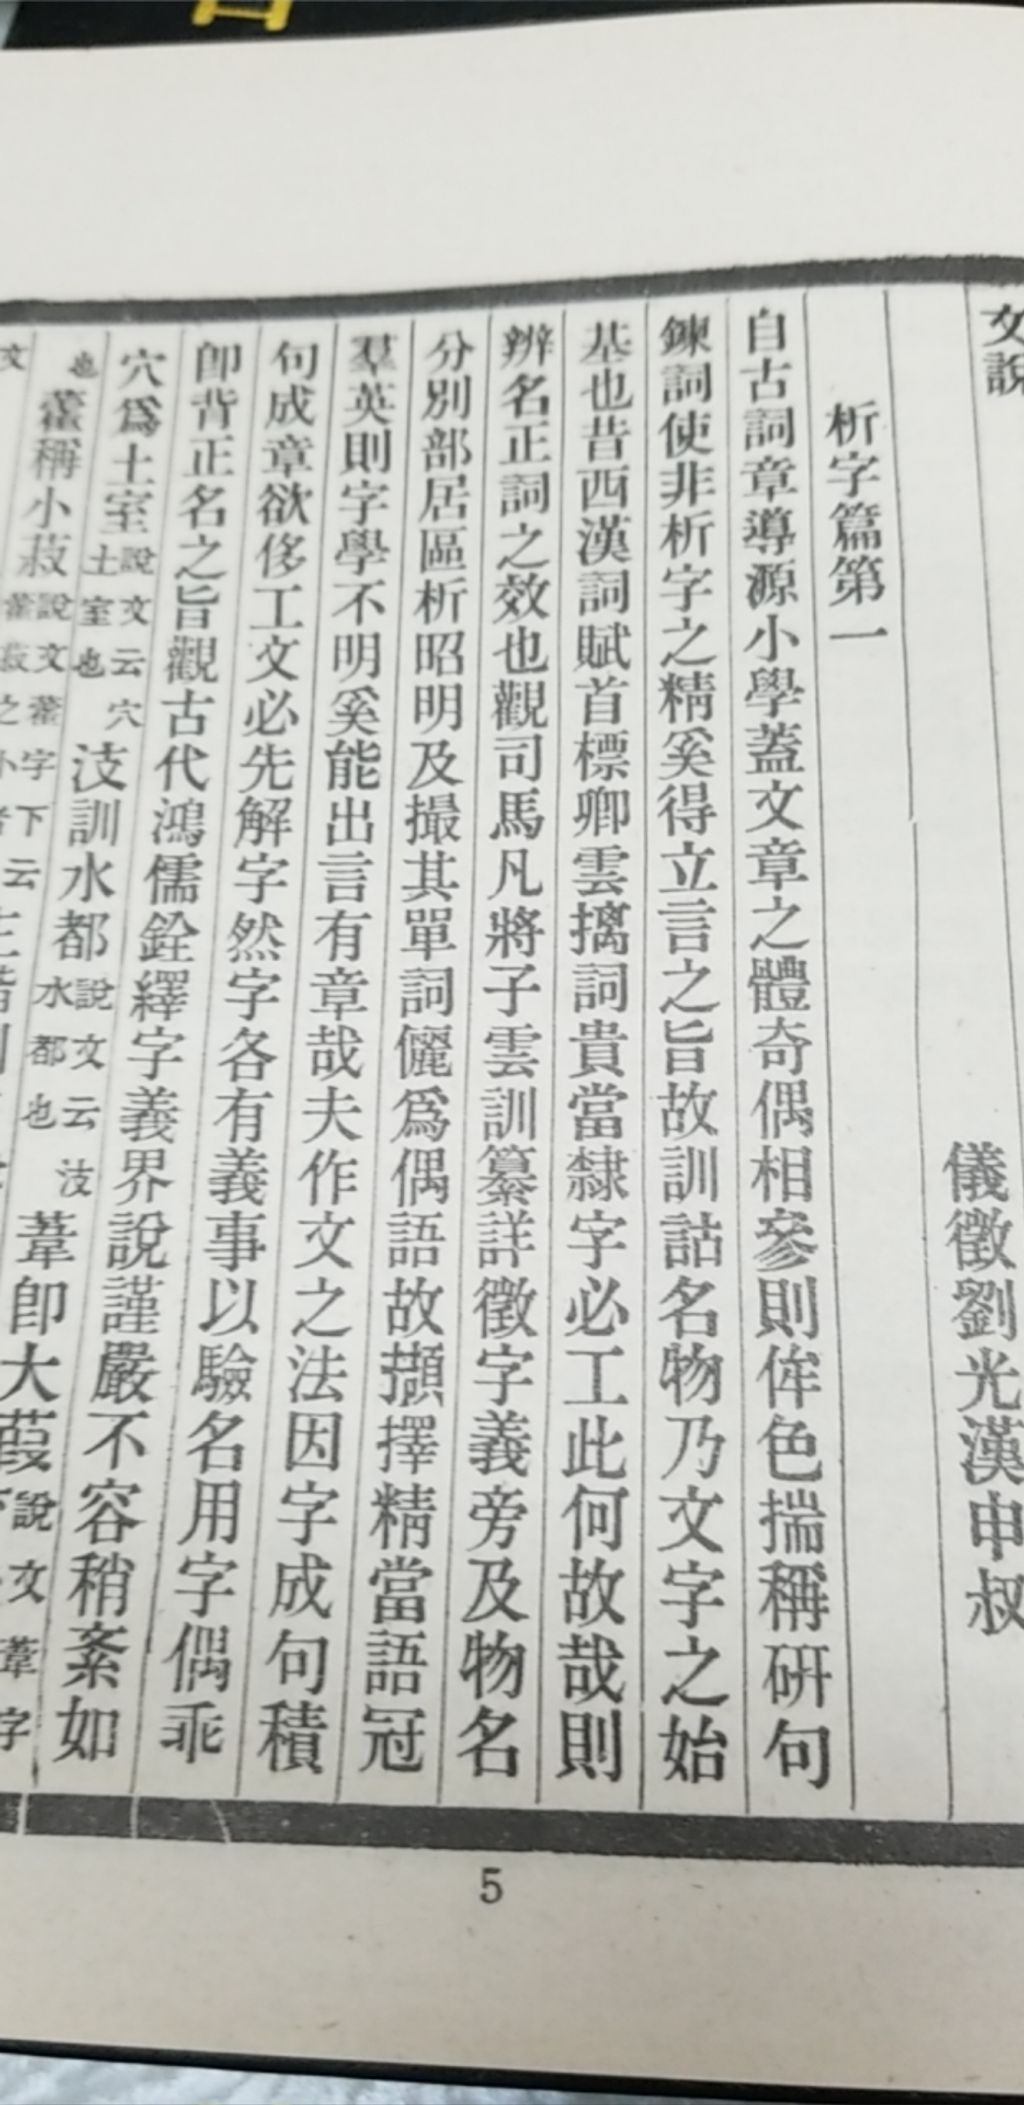 文說
儀徵劉光漢申叔
析字篇第一
自古詞章導源小學蓋文章之體奇偶相參則侔色揣稱研句
鍊詞使非析字之精奚得立言之旨故訓詁名物乃文字之始
基也昔西漢詞賦首標卿雲摛詞貴當隸字必工此何故哉則
辨名正詞之效也觀司馬凡將子雲訓纂詳徵字義旁及物名
分別部居區析昭明及撮其單詞儷爲偶語故擷擇精當語冠
羣英則字學不明奚能出言有章哉夫作文之法因字成句積
句成章欲侈工文必先解字然字各有義事以驗名用字偶乖
卽背正名之旨觀古代鴻儒銓繹字義界說謹嚴不容稍紊如
穴爲土室說文云穴土室也汥訓水都說文云汥水都也葦卽大葭說文葦字
也雚稱小菽說文雚字下云